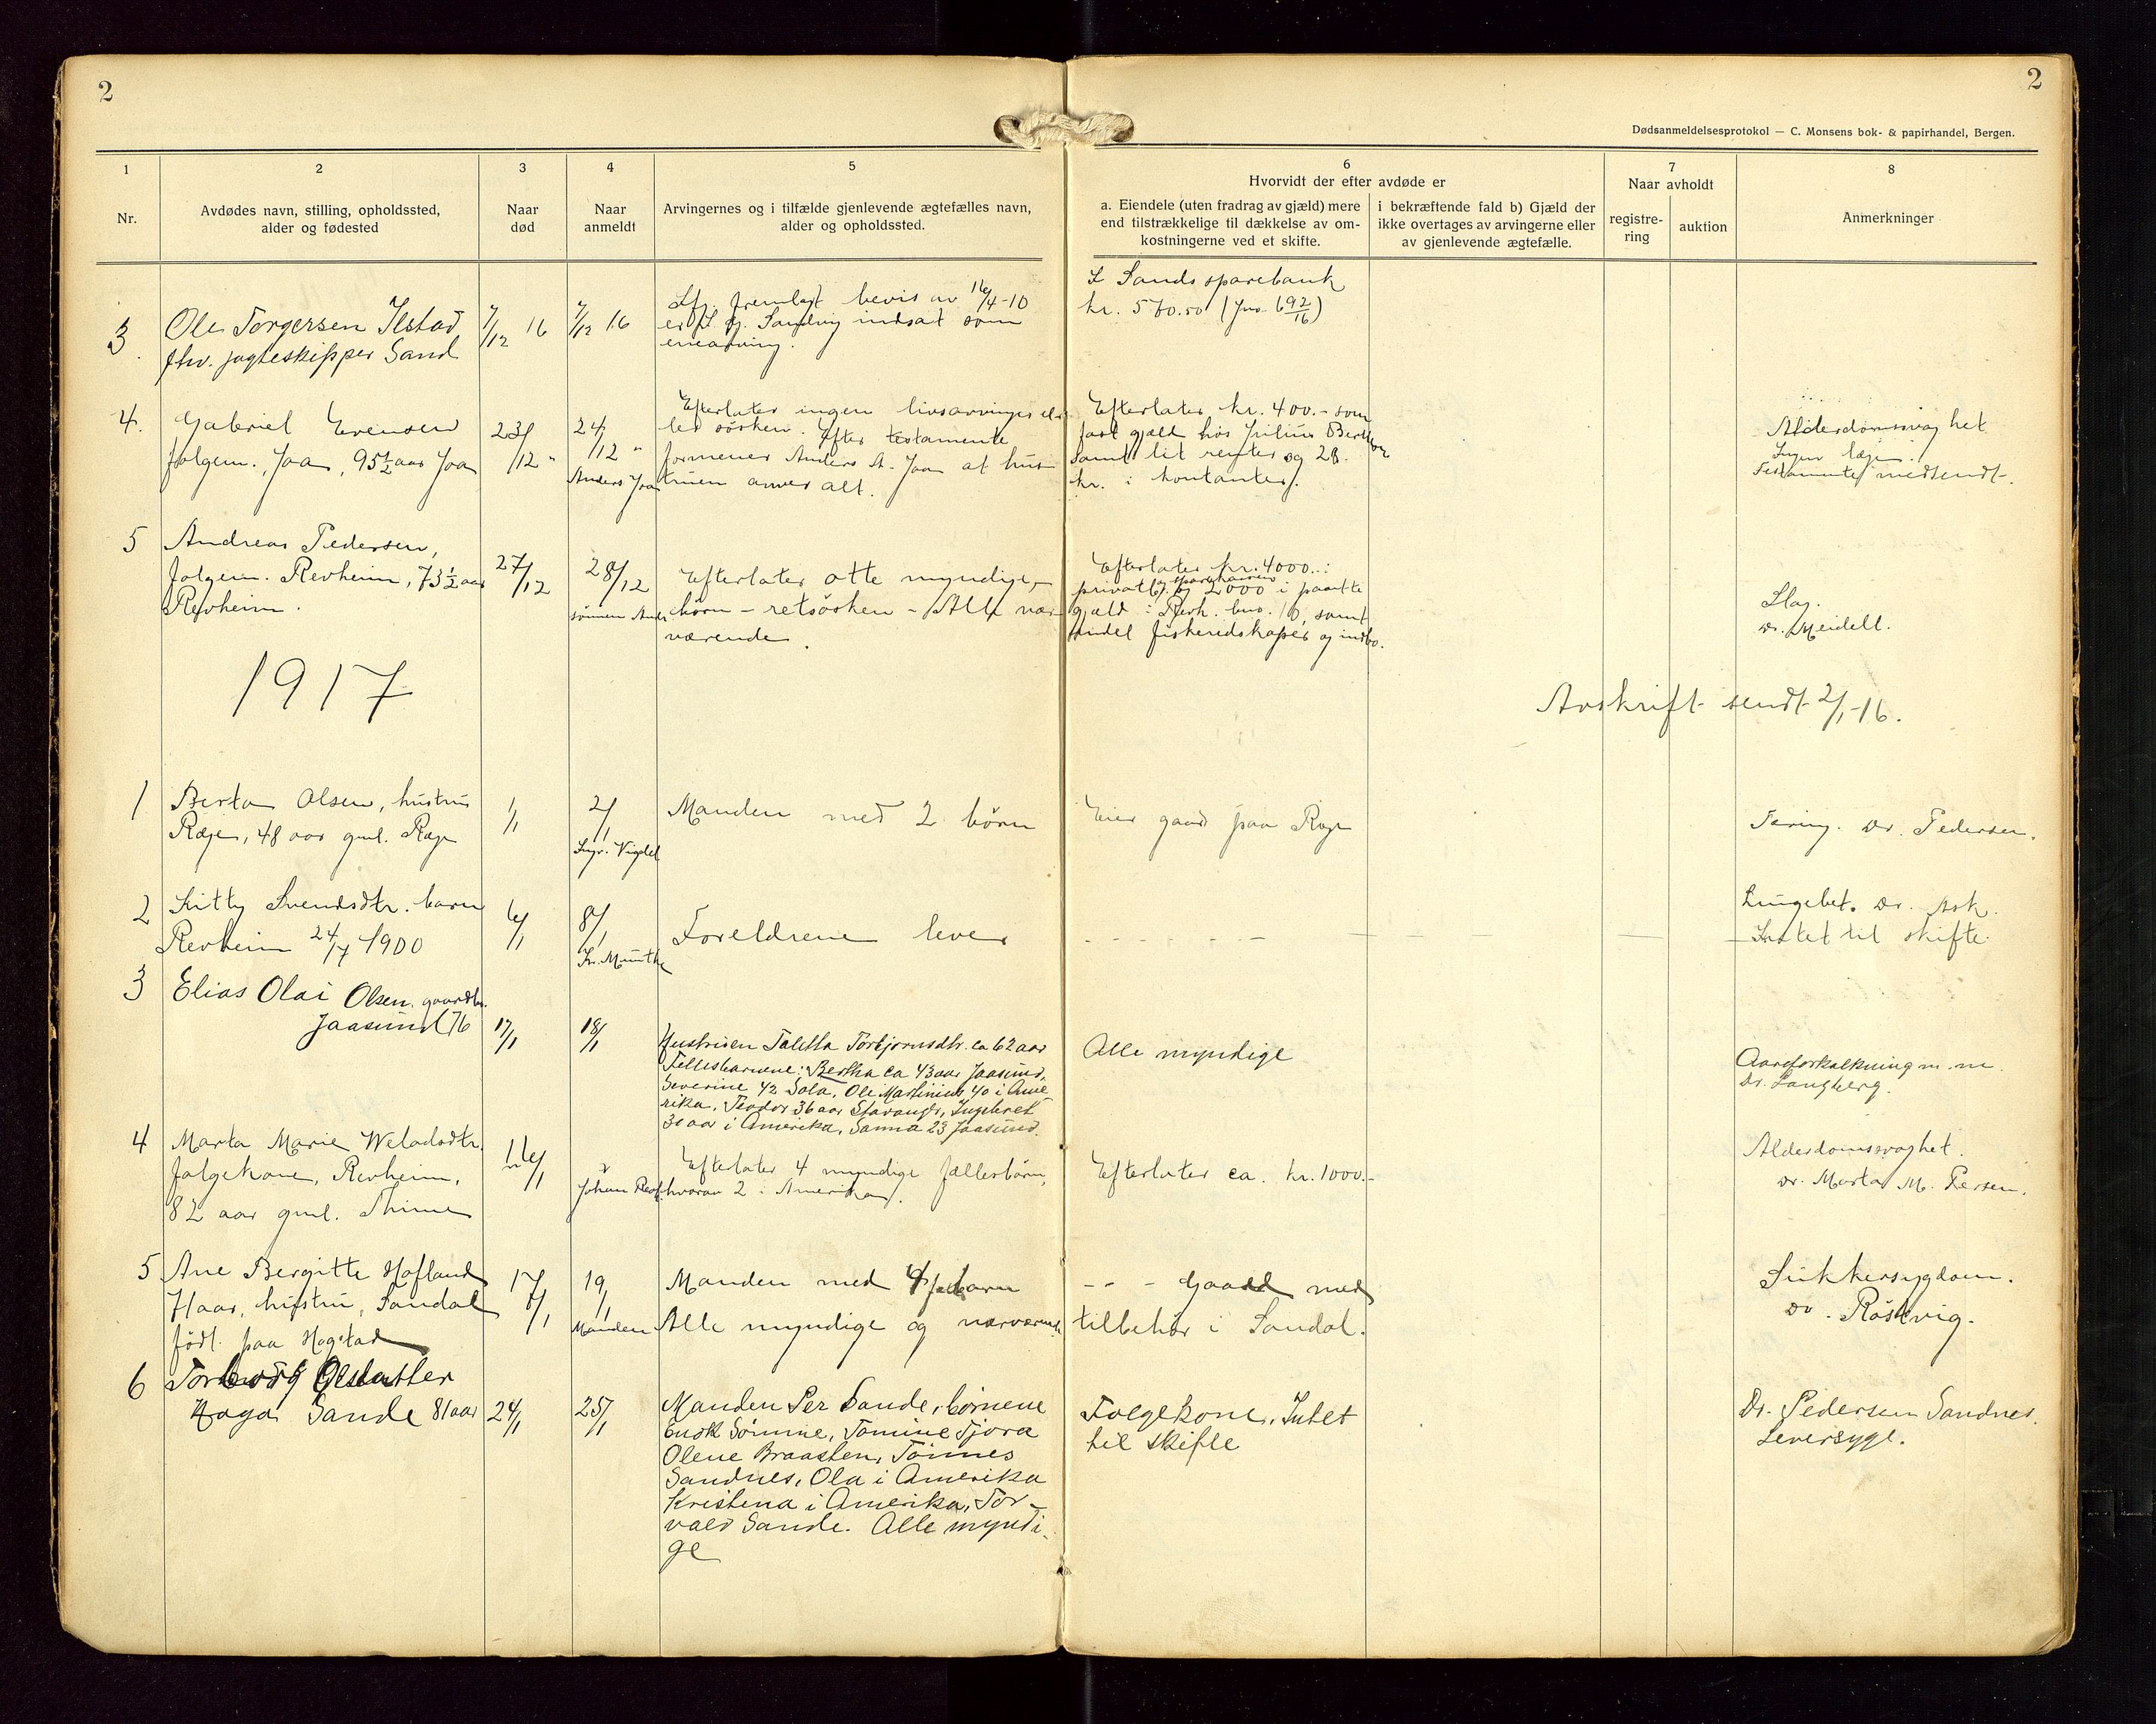 2
2
Dødsanmeldelsesprotokol — C. Monsens bok- & papirhandel, Bergen.
1
2
3
4
5
6
7
8
Nr.
Avdødes navn, stilling, opholdssted,
alder og fødested
Naar
død
Naar
anmeldt
Arvingernes og i tilfælde gjenlevende ægtefælles navn,
alder og opholdssted.
Hvorvidt der efter avdøde er
a. Eiendele (uten fradrag av gjæld) mere
end tilstrækkelige til dækkelse av om-
kostningerne ved et skifte.
i bekræftende fald b) Gjæld der
ikke overtages av arvingerne eller
av gjenlevende ægtefælle.
Naar avholdt
registre-
ring
auktion
Anmerkninger
3.
Ole Torgersen Ilstad
fhv. jagteskipper Sand
7/12 16
7/12 16
Lfg. fremlagt bevis av 16/4-10
er Sandvig indsat som
enearving.
I Sands sparebank
kr. 570.50 (Jno. 692/16)
4.
Gabriel Evensen
folgem., Jaa, 95½ aar Jaa
23/12 "
24/12 "
Anders Jaa
Efterlater ingen livsarvinger el-
ler søsken. Efter testamente
formener Anders A. Jaa at hus-
truen arver alt.
Efterlater kr. 400.- som
fast gjæld hos Julius
samt lit renter og 28.
kr. i kontanter.
Alderdomssvaghet
Ingen læge.
Testamente medsendt.
5
Andreas Pedersen,
folgem. Revheim, 73½ aar
Revheim.
27/12
28/12
sønnen
Efterlater otte myndige
børn - retsøsken - Alle nær
værende.
Efterlater kr. 4000..:
privat og 2000 i pante
gjæld i Revh. bno. 10, samt
andel fiskeredskaper og indbo.
Slag.
Dr. Meidell.
1917
Avskrift sendt 2/1-16.
1
Berta Olsen, hustru
Ræge, 48 aar gml. Ræge
1/1
2/1
Vigdel
Manden med 2 børn
Eier gaard paa Ræge
Tæring. Dr. Pedersen.
2
Kitty Svendsdtr. barn
Revheim 24/7 1900
6/1
8/1
Kr. Munthe
Foreldrene lever
Lungebet. Dr. Ask.
Intet til skifte
3
Elias Olai Olsen. gaardbr.
Jaasund 76
17/1
18/1
Hustruen Taletta Torbjørnsdtr. ca 62 aar
Fellesbarnene: Bertha ca 43 aar Jaasund,
Severine 42 Sola, Ole Martinius 40 i Ame
rika, Teodor 36 aar Stavanger, Ingebret
30 aar i Amerika, Sanna 23 Jaasund.
Alle myndige
Aareforkalkning m.m.
Dr. Langberg.
4
Marta Marie
folgekone, Revheim,
82 aar gml. Thime
16/1
Johan
Efterlater 4 myndige fællesbørn,
hvorav 2 i Amerika.
Efterlater ca. kr. 1000.-
Alderdomssvaghet.
Dr. Marta M. Persen.
5
Ane Bergitte Hofland
Haar, hustru, Sandal
født paa Hogstad
17/1
19/1
Manden
Manden med 4
Alle myndige og nærværende
Gaard med
tilbehør i Sandal.
Sukkersygdom.
Dr. Røstvig.
6
Haga Sande 81 aar
24/1
25/1
Manden Per Sande, børnene
Sømme, Tomine Tjora
Olene Braasten, Tønnes
Sandnes, Ola i Amerika
Kristena i Amerika, Tor-
vald Sande. Alle myndi-
ge
Folgekone. Intet
til skifte
Dr. Pedersen Sandnes.
Leversyge.